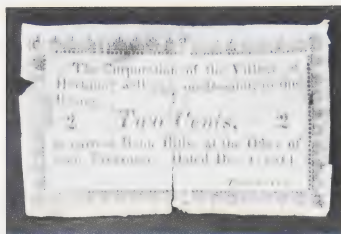 The Corporation of the Village of
Herkimer will pay on Demand, to the
Bearer,
2 Two Cents, 2
in current Bank Bills, at the Office of
their Treasurer. Dated Dec.
Treasurer.